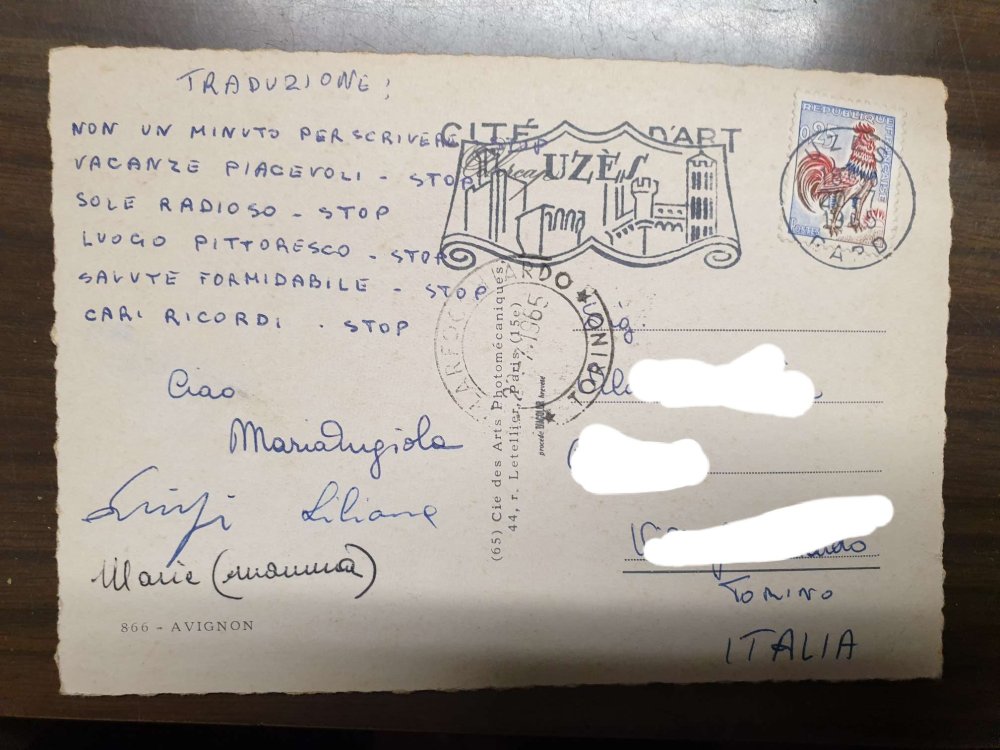 TRADUZIONE:
NON UN MINUTO PER SCRIVERE - STOP
VACANZE PIACEVOLI - STOP
SOLE RADIOSO - STOP
LUOGO PITTORESCO - STOP
SALUTE FORMIDABILE - STOP
CARI RICORDI - STOP
Ciao
Mariangiola
Luigi Liliana
Marie (mamma)
866 - AVIGNON
CITÉ D'ART
UZÈS
REPUBLIQUE FRANÇAISE
0,25
POSTES
GARD
TORINO
1965
(65) Cie des Arts Photomécaniques,
44, r. Letellier, Paris (15e)
Sig.
TORINO
ITALIA